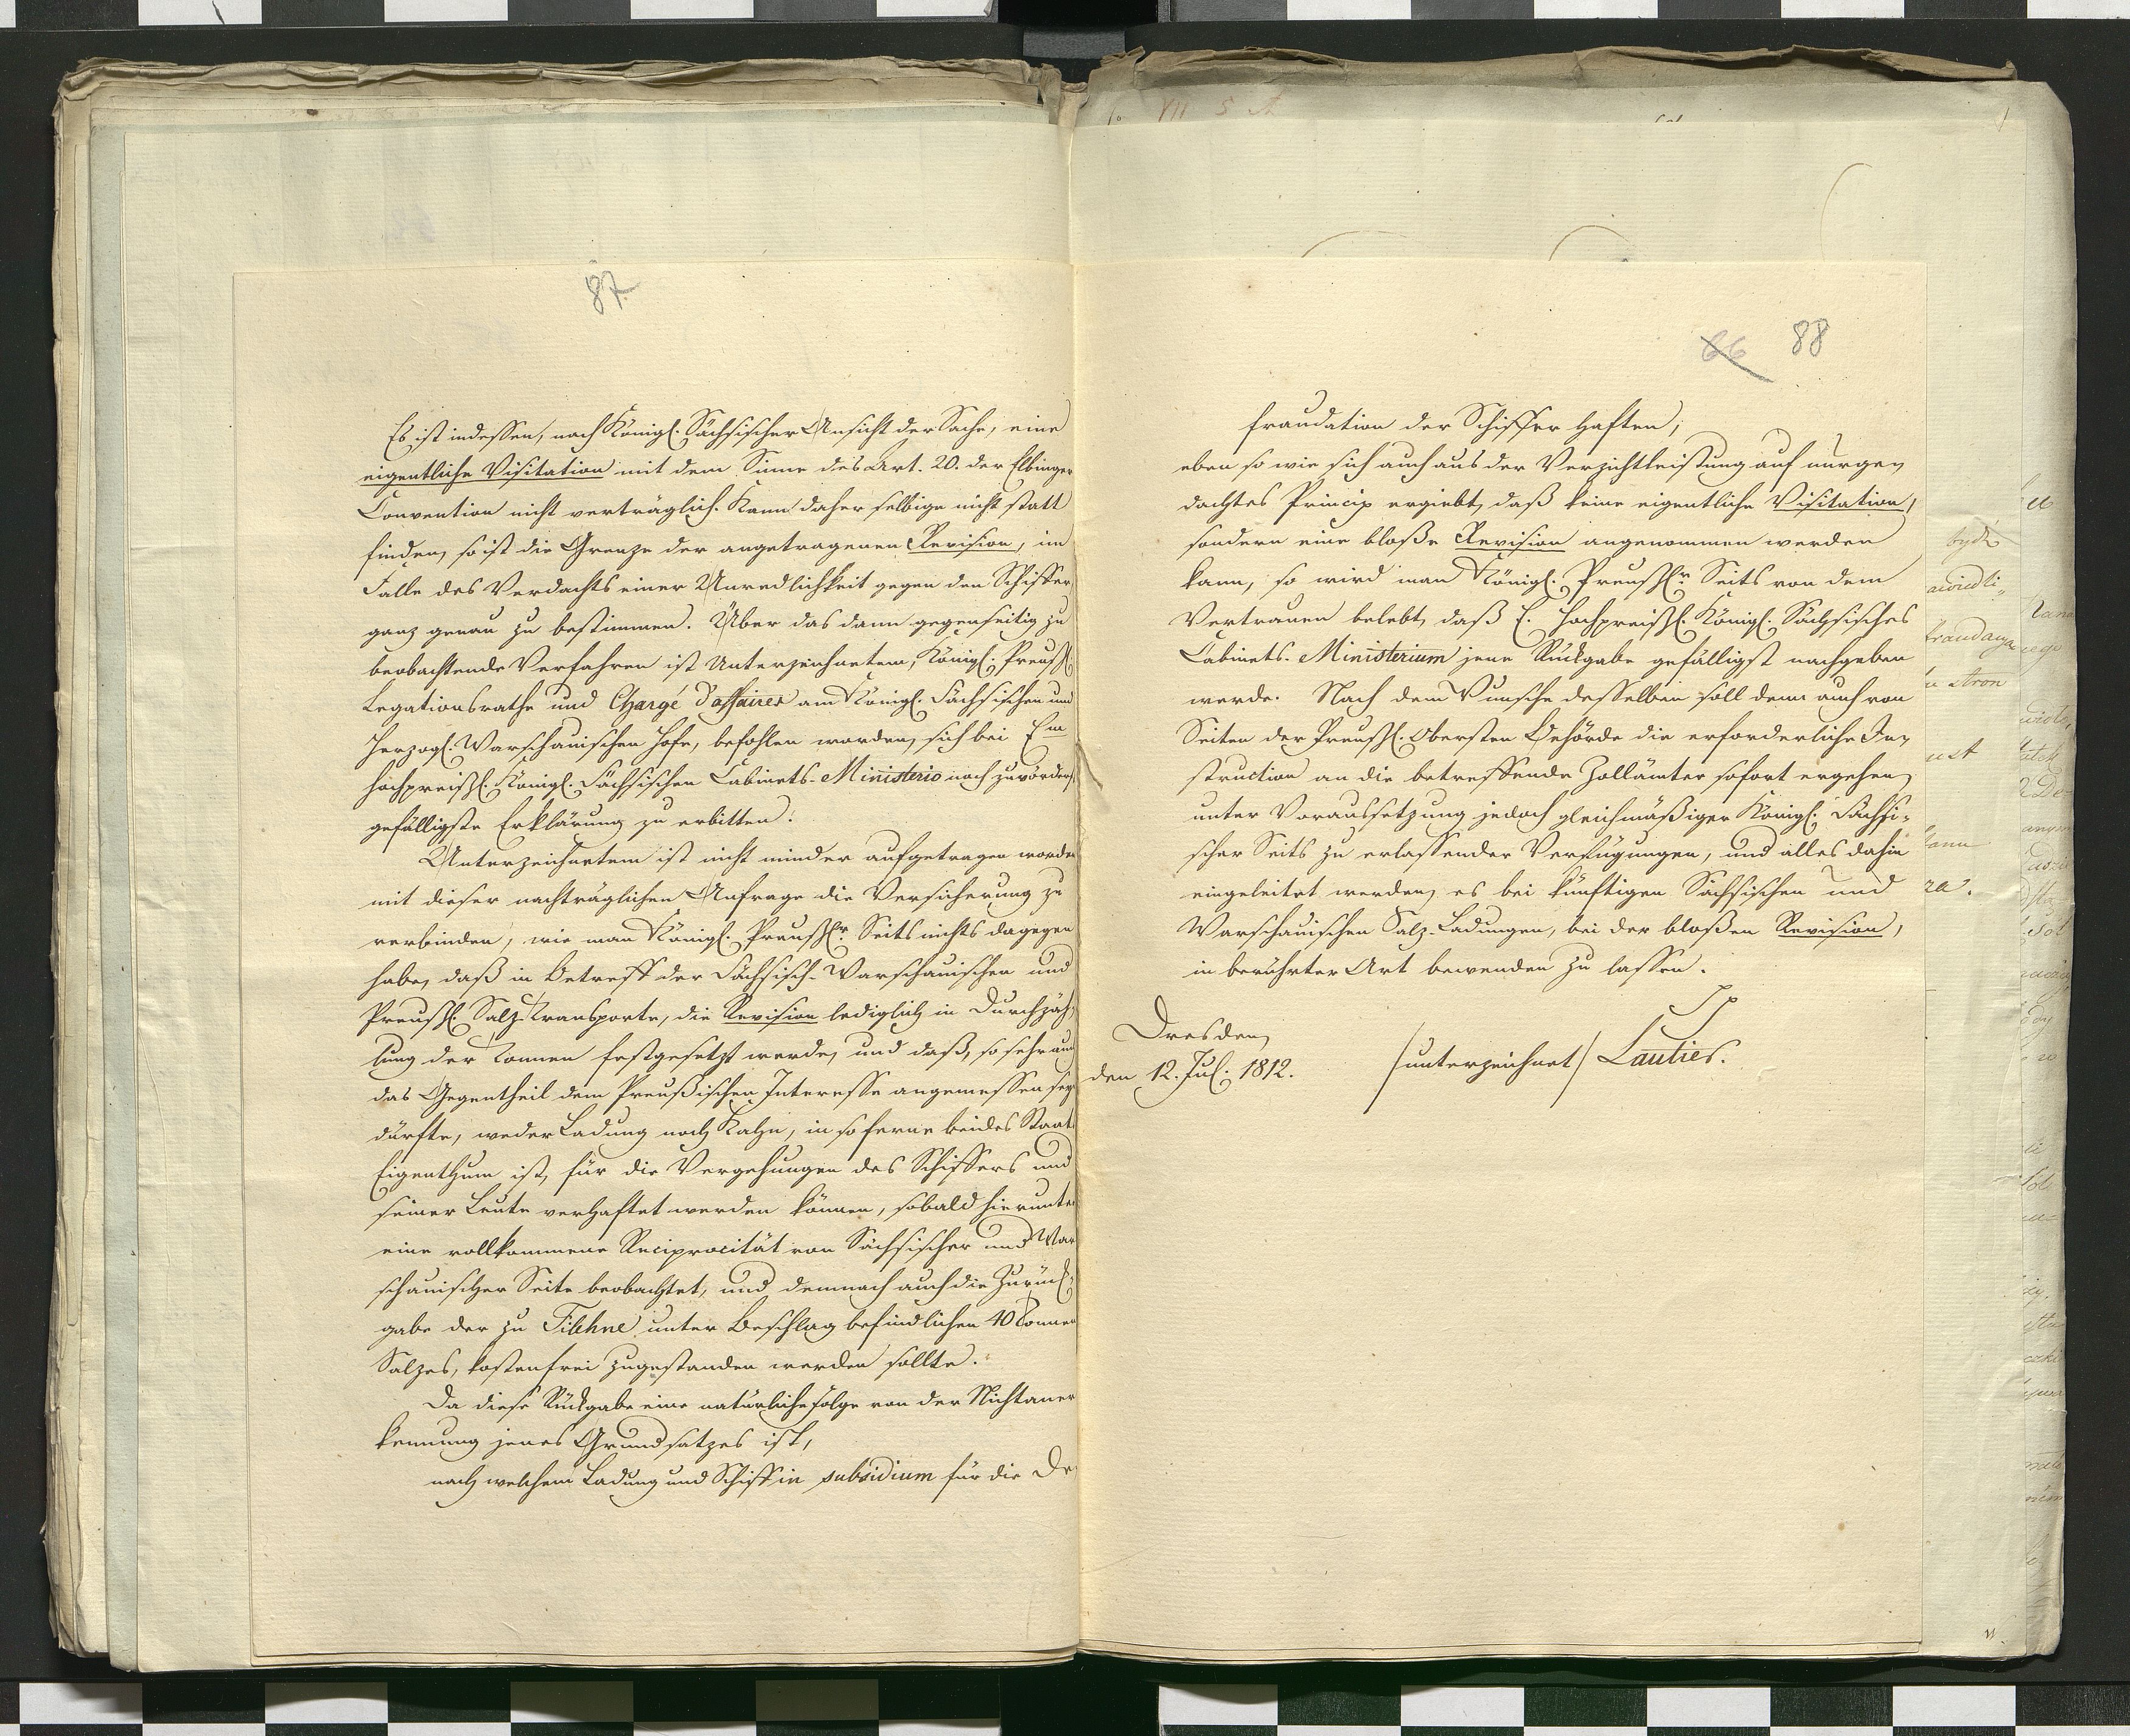 87
Es ist indessen, nach Königl. Sächsischer Ansicht der Sache, eine
eigentliche Visitation mit dem Sinne des Art. 20. der Elbinger
Convention nicht verträglich. Kann daher selbige nicht statt
finden, so ist die Grenze der angetragenen Revision, im
Falle des Verdachts einer Unredlichkeit gegen den Schiffer
ganz genau zu bestimmen. Über das dann gegenseitig zu
beobachtende Verfahren ist Unterzeichnetem, Königl. Preußl.
Legationsrathe und Chargé d'affaires am Königl. Sächsischen und
Herzogl. Warschauischen Hofe, befohlen worden, sich bei Em
hochpreißl. Königl. Sächsischen Cabinets-Ministerio noch zuvörderst
gefälligste Erklärung zu erbitten.
Unterzeichnetem ist nicht minder aufgetragen worden
mit dieser nachträglichen Anfrage die Versicherung zu
verbinden, wie man Königl. Preußl.r Seits nichts dagegen
habe, daß in Betreff der Sächsisch-Warschauischen und
Preußl. Salz-Transporte, die Revision lediglich in Durchzäh-
lung der Tonnen festgesetzt werde, und daß, so sehr auch
das Gegentheil dem Preußischen Interesse angemessen seyn
dürfte, weder Ladung noch Kahn, in soferne beides Staats
Eigenthum ist, für die Vergehungen des Schiffers und
seiner Leute verhaftet werden können, sobald hierunter
eine vollkommene Reciprocität von Sächsischer und War
schauischer Seite beobachtet, und demnach auch die Zurück-
gabe der zu Filehne unter Beschlag befindlichen 10 Tonnen
Salzes, kostenfrei zugestanden werden sollte.
Da diese Rückgabe eine natürliche Folge von der Nichtaner
kennung jenes Grundsatzes ist,
nach welchem Ladung und Schiff in subsidium für die De
66 88
fraudation der Schiffer haften,
eben so wie sich auch aus der Verzichtleistung auf nurge-
dachtes Princip ergiebt, daß keine eigentliche Visitation,
sondern eine bloße Revision angenommen werden
kann, so wird man Königl. Preußl.r Seits von dem
Vertrauen belebt, daß E. hochpreißl. Königl. Sächsisches
Cabinets-Ministerium jene Rückgabe gefälligst nachgeben
werde. Nach dem Wunsche desselben soll denn auch von
Seiten der Preußl. Obersten Behörde die erforderliche In-
struction an die betreffende Zollämter sofort ergehen,
unter Voraussetzung jedoch gleichmäßiger Königl. Sächsi-
scher Seits zu erlassender Verfügungen, und alles dahin
eingeleitet werden, es bei künftigen Sächsischen und
Warschauischen Salz-Ladungen, bei der bloßen Revision,
in berührter Art bewenden zu lassen.
Dresden,
den 12. Jul. 1812.
/unterzeichnet/ Lautier.